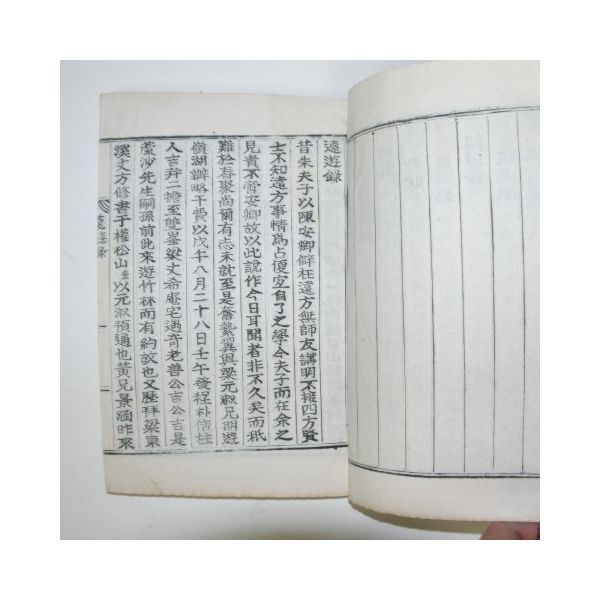 遠遊録
昔朱夫子以陳安卿僻在遠方無師友講明不接四方賢
士不知遠方事情為占便宜自了之學今夫子而在余之
見責不啻安卿故以此說作今日耳聞者非不久矣而秖
難於舂聚尚爾有志未就至是奮發與梁元淑兄期遊
嶺湖辦略干費以戊午八月二十八日壬午發程朴倍柱
人吉并二擔至雙峯梁丈希庵宅遇奇老善公吉公吉是
蘆沙先生嗣孫前此來遊竹林而有約故也又歷拜梁東
溪丈方修書于權松山以元淑預通也黃兄景涵昨來